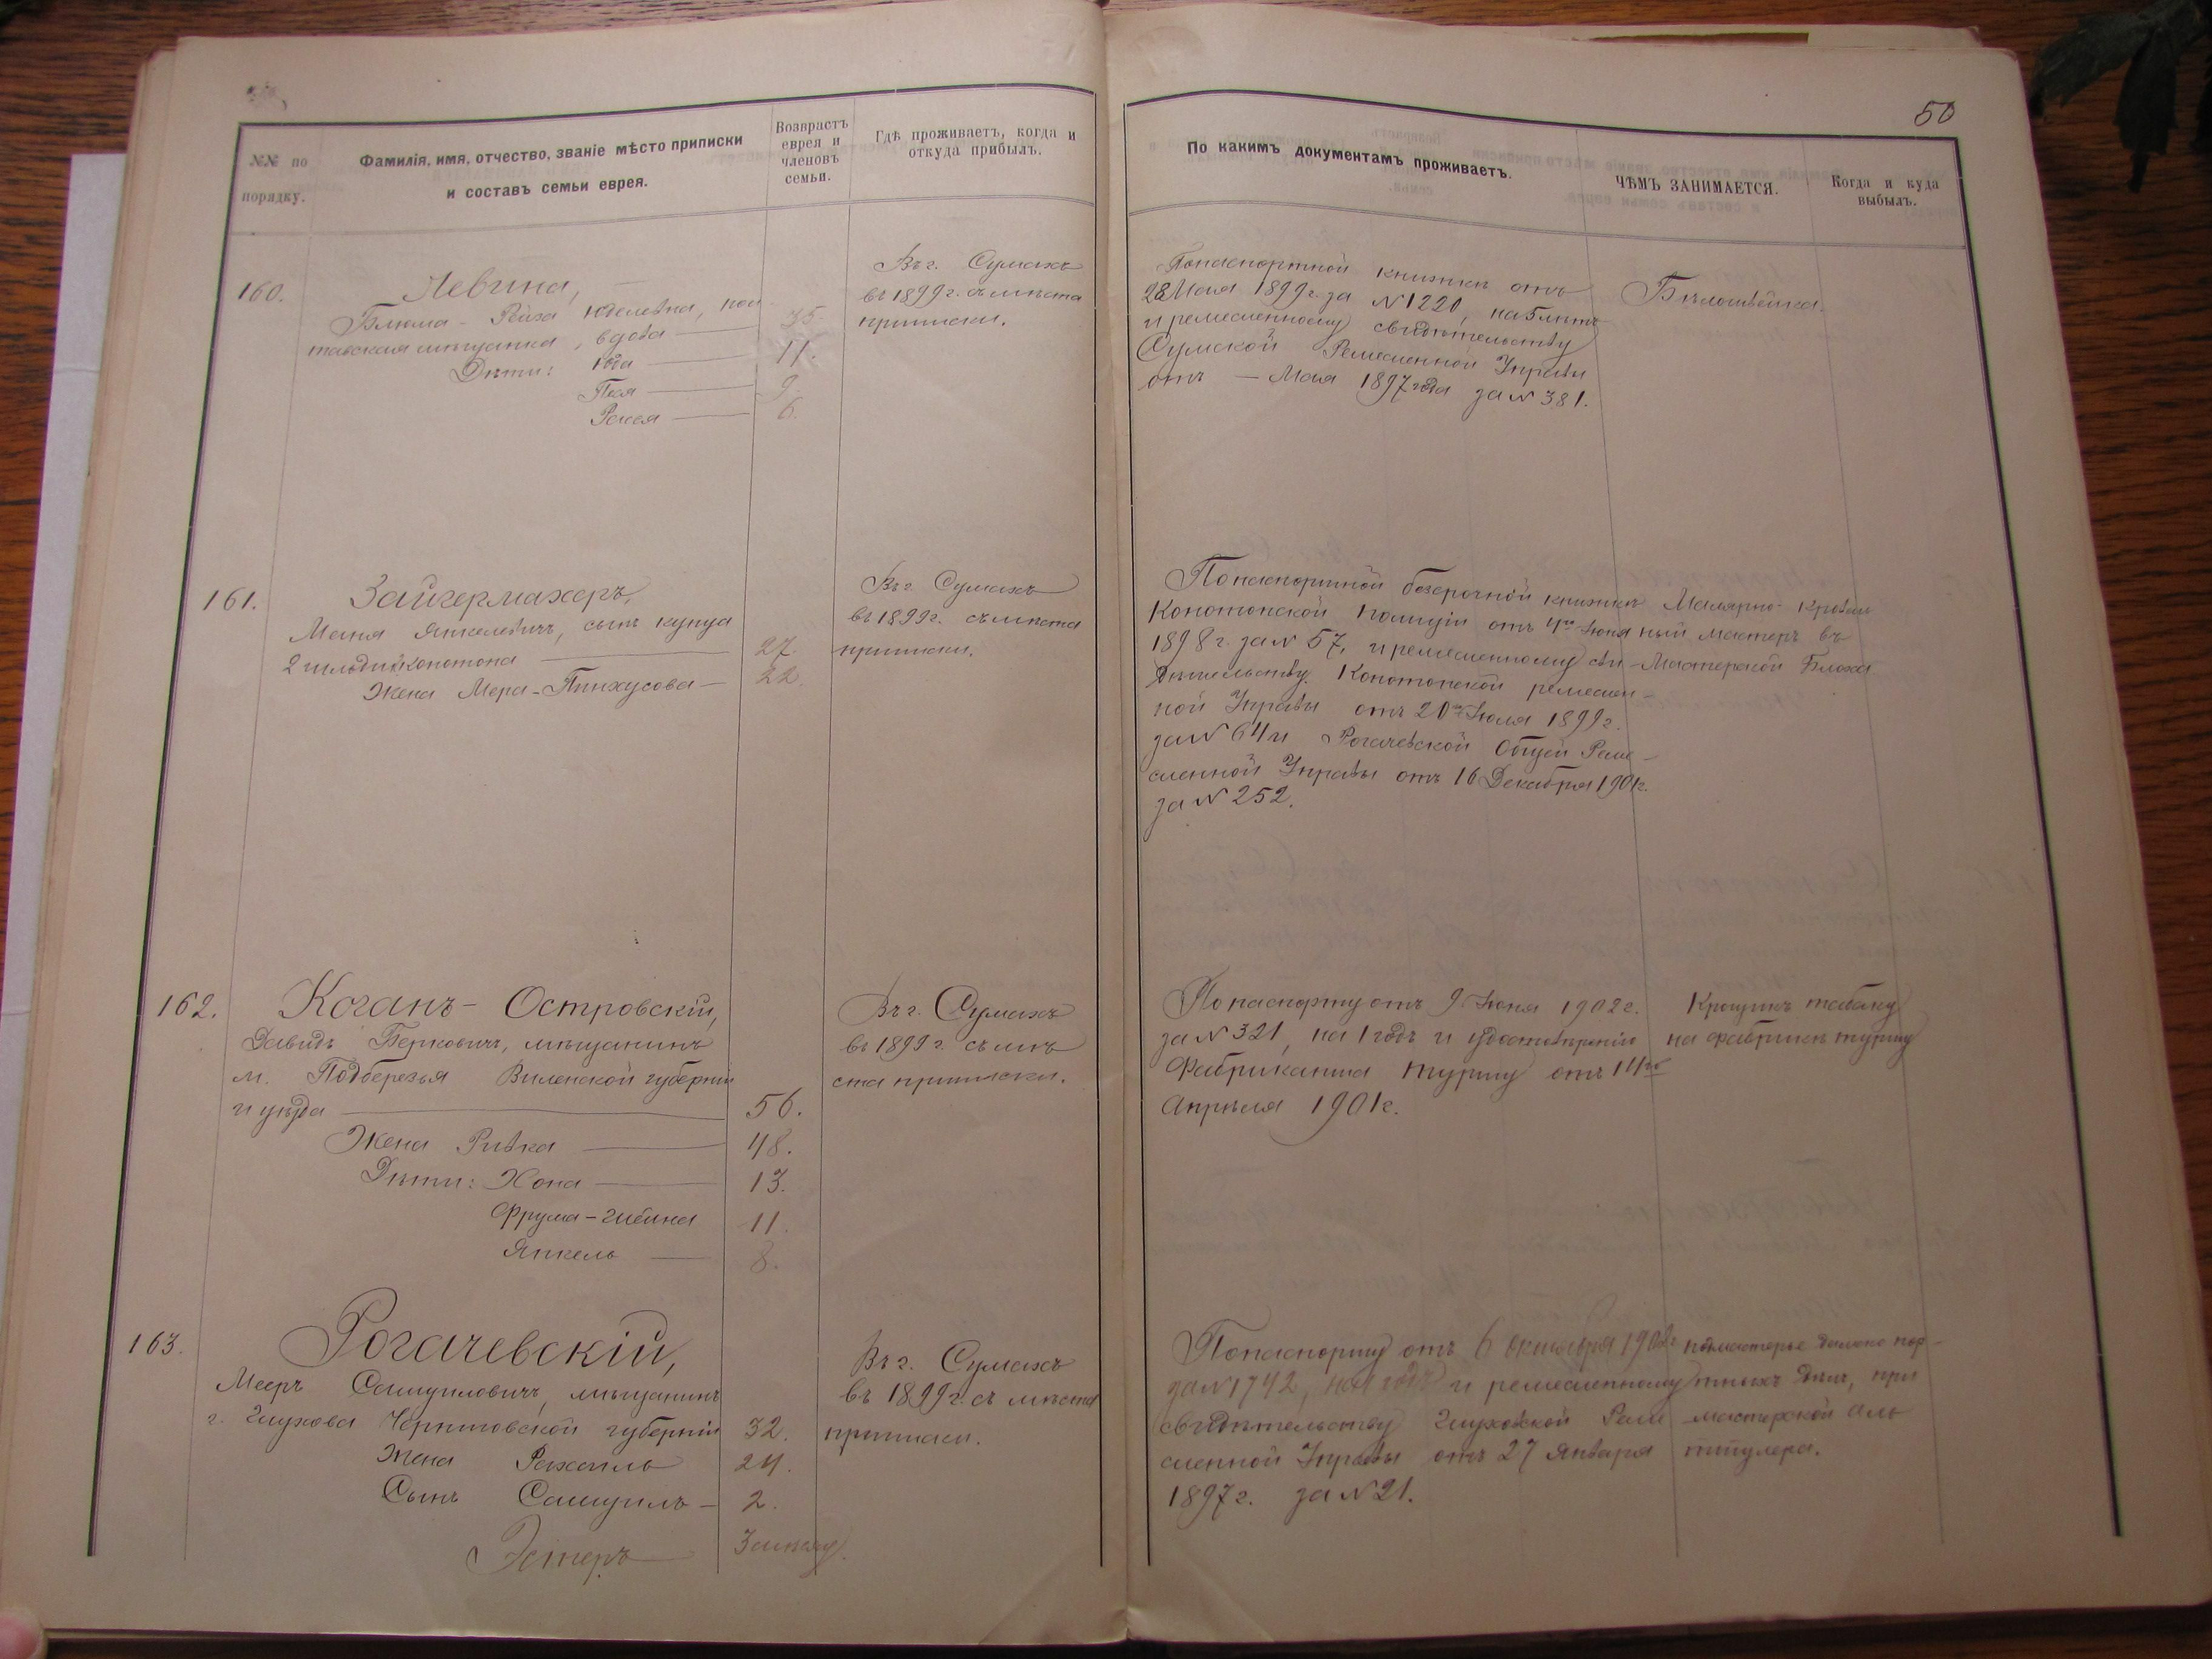 50
№№ по порядку.
Фамилія, имя, отчество, званіе мѣсто приписки
и составъ семьи еврея.
Возврастъ
еврея и
членовъ
семьи.
Гдѣ проживаетъ, когда и
откуда прибылъ.
По какимъ документамъ проживаетъ.
ЧѢМЪ ЗАНИМАЕТСЯ.
Когда и куда
выбылъ.
160.
Левина,
Блюма - Рейза Юделевна, пол
тавская мѣщанка, вдова — 35.
Дѣти: Юда — 11.
Песя — 9.
Рася — 6.
Въ г. Сумахъ
въ 1899 г. съ мѣста
приписки.
Попаспортной книжкѣ отъ
28 Мая 1899 г. за № 1220, на 5 лѣтъ
и ремесленному свидѣтельству
Сумской Ремесленной Управы
отъ — Мая 1897 года за № 381.
Бѣлошвейка.
161.
Зайгермахеръ,
Маня Янкелевичъ, сынъ купца
2 гильдіи Конотопа — 27.
Жена Мера - Пинхусова — 22.
Въ г. Сумахъ
въ 1899 г. съ мѣста
приписки.
Попаспортной безсрочной книжкѣ
Конотопской полиціи отъ 4го Іюня
1898 г. за № 57, и ремесленному сви-
дѣтельству Конотопской ремеслен-
ной Управы отъ 20го Іюля 1899 г.
за № 64 и Рогачевской Общей Реме-
сленной Управы отъ 16 Декабря 1901 г.
за № 252.
Малярно - Кровель
ный мастеръ въ
Мастерской Блоха
162.
Коганъ - Островскій,
Давидъ Берковичъ, мѣщанинъ
м. Подберезья Виленской губерніи
и уѣзда — 56.
Жена Ривка — 48.
Дѣти: Хона — 13.
Фрума - Гиб‌ина 11.
Янкель — 8.
Въ г. Сумахъ
въ 1899 г. съ мѣ
ста приписки.
По паспорту отъ 9 Іюня 1902 г.
за № 321, на 1 годъ и удостовѣренію
Фабриканта Турицу отъ 14го
Апрѣля 1901 г.
Крошитъ табаку
на фабрикѣ Турицу
163.
Рогачевскій,
Мееръ Самуиловичъ, мѣщанинъ
г. Глухова Черниговской губерніи 32.
Жена Рахиль 24.
Сынъ Самуилъ — 2.
Эстеръ
Въ г. Сумахъ
въ 1899 г. съ мѣста
приписки.
Попаспорту отъ 6 Октября 190 г.
за № 1742, на 1 годъ и ремесленному
свидѣтельству Глуховской Реме
сленной Управы отъ 27 Января
1897 г. за № 21.
подмастерье дамско пор-
тныхъ дѣлъ, при
мастерской Аль